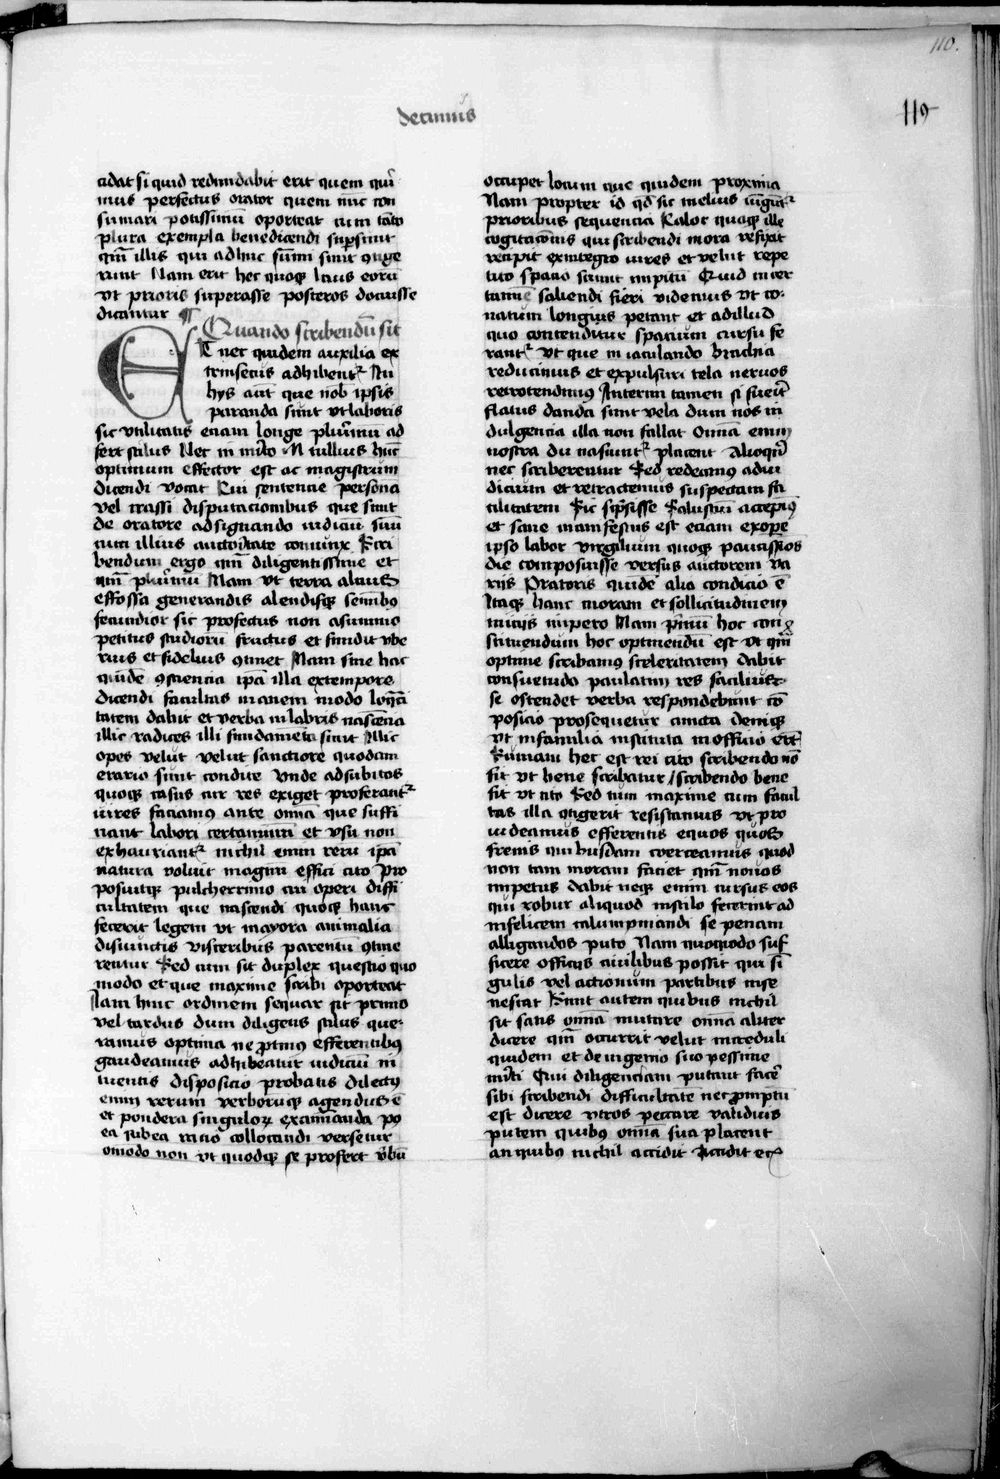 110.
decimus
119
cidat si quid redundabit erit quem qurī
mus perfectus orator quem nuc con
sumari potissimū oporteat cum tāto
plura exempla benedicendi supsunt
qm̄ illis qui adhuc sūmi sunt 9tige
runt Nam erit hec quoqꝫ laus eorū
vt prioris superasse posteros docuisse
dicantur ¶
Quando scribendū sit
Et nec quidem auxilia ex
trinsecus adhibentᷣ In
hys aūt que nob̄ ipsis
paranda sunt vt laboris
sic vtilitatis eciam longe plurīmū ad
fert stilus Nec in mīto M tullius hūc
optimum effector est ac magistrum
dicendi vocat Cui sentencie persona
vel crassi disputacionibus que sunt
de oratore adsignando iudiciū suū
cum illius auctoītate coniunx Scri
bendum ergo qm̄ diligentissime et
qm̄ plurīmū Nam vt terra alcius
effossa generandis alendisqꝫ semībꝰ
fecundior sic profectus non asummo
petitus studiorū fructus et fundit vbe
rius et fidelius 9tinet Nam sine hac
quidē 9sciencia ip̄a illa extempore
dicendi facultas inanem modo loq̄ci
tatem dabit et verba in labris nascēcia
illic radices illi fundamēta sunt Illic
opes velut velut sanctiore quodam
erario sunt condite vnde adsubitos
quoqꝫ casus cur res exiget proferantᷣ
vires faciamꝰ ante oīna que suffi
ciant labori certaminū et vsu non
exhauriantᷣ nichil enim rerū ip̄a
natura voluit magnū effici cito pro
posuitqꝫ pulcherrimo cui operi diffi
cultatem que nascendi quoqꝫ hanc
fecerit legem vt mayora animalia
disiunctis visceribus parentū 9tine
rentur Sed cum sit duplex questio quo
modo et que maxime scribi oporteat
Iam hinc ordinem sequar sit primo
vel tardus dum diligens stilus que-
ramus optima ne ꝓtinus efferentibꝫ
gaudeamus adhibeatur iudiciū in
uentis disposicio probatis dilectꝰ
enim rerum verborūqꝫ agendus ē
et pondera singuloꝝ examinanda po
ea subea racio collocandi versetur
omodo non vt quodqꝫ se profert vbū
occupet locum que quidem proxima
Nam propter id qd̄ sic melius iūgūtᷣ
prioribus sequencia Calor quoqꝫ ille
cogitacōnis qui scribendi mora refixit
recipit exintegro vires et velut repe
tito spacio sumit impetū Quid incer
tamīe saliendi fieri videmus vt co-
natum longius petant et adillud
quo contenditur spacium cursu fe
rantᷣ vt que in iaculando brachia
reducimus et expulsuri tela neruos
retrotendimꝰ Interim tamen si fuerīt
flatus danda sunt vela dum nos in
dulgencia illa non fallat Omnīa enim
nostra dū nascuntᷣ placent Alioqurī
nec scriberentur Sed redeamꝰ adiu
dicium et retractemus suspectam fa
cilitatem Sic sc̄psisse Salustiū accepimꝰ
et sane manifestus est eciam exopē
ipso labor virgilium quoqꝫ paucissios
die composuisse versus auctorem va
rijs Oratoris quidē alia condicio ē
Itaqꝫ hanc moram et sollicitudinem
inicijs impero Nam pmū hoc con
stituendum hoc optinendū est vt qm̄
optime scribamꝰ sceleritatem dabit
consuetudo paulatim res faciliusᷣ
se ostendet verba respondebunt cō
posicio prosequetur cuncta deniqꝫ
vt infamilia instituta inofficio erūt
Sūmam hec est rei cito scribendo nō
fit vt bene scribatur / scribendo bene
fit vt cito Sed tum maxime cum facul
tas illa 9tigerit resistamus vt pro
uideamus efferentis equos quos
frenis quibusdam coerceamus quod
non tam moram faciet qm̄ nouos
impetus dabit neqꝫ enim cursus eos
qui robur aliquod instilo fecerint ad
infelicem calumpniandi se penam
alligandos puto Nam quomodo suf
ficere officijs ciuilibus possit qui sī
gulis vel actionum partibus inse
nescat Sunt autem quibus nichil
sit satis omīa mutare omīa aliter
dicere qm̄ occurrit velut increduli
quidem et deingenio suo pessime
mīti Qui diligenciam putant facē
sibi scribendi difficultatē nec ꝓmptū
est dicere vtros peccare validius
putem quibus omīa sua placent
an quibus nichil accidit Accidit ecᷣ